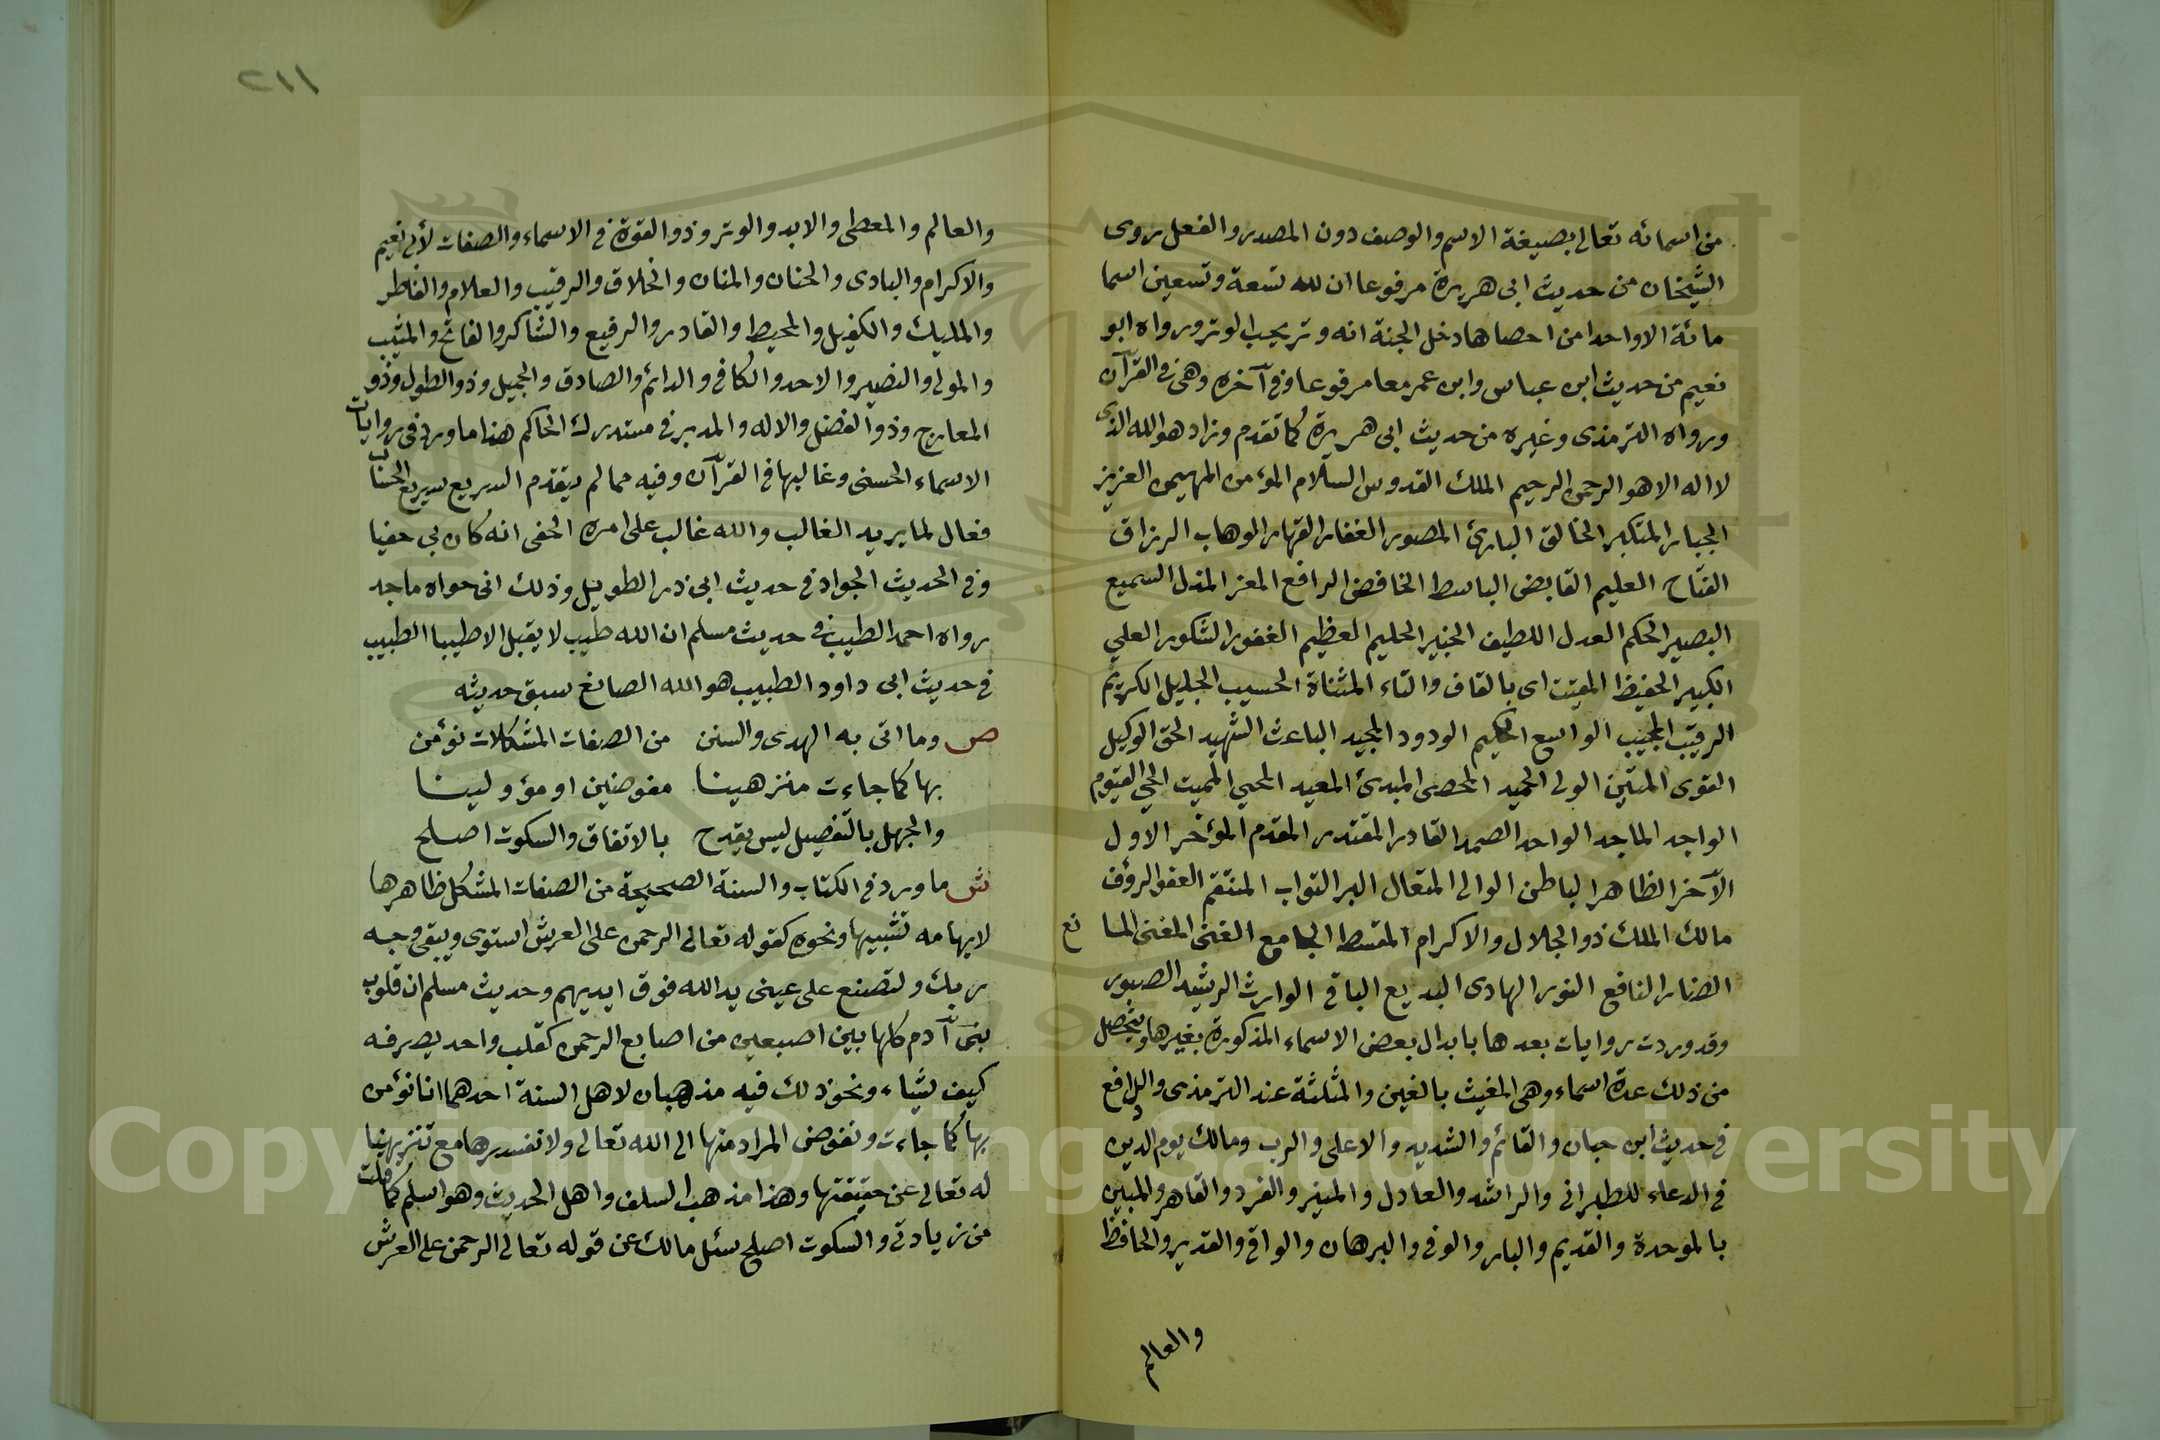 من اسمائه تعالى بصيغة الاسم والوصف دون المصدر والفعل روى
الشيخان من حديث ابى هريرة مرفوعا ان لله تسعة وتسعين اسما
مائة الا واحدا من احصاها دخل الجنة انه وتر يحب الوتر ورواه ابو
نعيم من حديث ابن عباس وابن عمر معا مرفوعا وفى آخره وهى فى القرآن
ورواه الترمذى وغيره من حديث ابى هريرة كما تقدم وزاد هو الله الذى
لا اله الا هو الرحمن الرحيم الملك القدوس السلام المؤمن المهيمن العزيز
الجبار المتكبر الخالق البارئ المصور الغفار القهار الوهاب الرزاق
الفتاح العليم القابض الباسط الخافض الرافع المعز المذل السميع
البصير الحكم العدل اللطيف الخبير الحليم العظيم الغفور الشكور العلي
الكبير الحفيظ المقيت اى بالقاف والتاء المثناة الحسيب الجليل الكريم
الرقيب المجيب الواسع الحكيم الودود المجيد الباعث الشهيد الحق الوكيل
القوى المتين الولى الحميد المحصى المبدئ المعيد المحيي المميت الحي القيوم
الواجد الماجد الواحد الصمد القادر المقتدر المقدم المؤخر الاول
الآخر الظاهر الباطن الوالى المتعال البر التواب المنتقم العفو الرؤف
مالك الملك ذو الجلال والاكرام المقسط الجامع الغنى المغنى المانع
الضار النافع النور الهادى البديع الباقى الوارث الرشيد الصبور
وقد وردت روايات بعدها بابدال بعض الاسماء المذكورة بغيرها ويتحصل
من ذلك عدة اسماء وهى المغيث بالغين والمثلثة عند الترمذى والرافع
فى حديث ابن حبان والقائم والشديد والاعلى والرب ومالك يوم الدين
فى الدعاء للطبرانى والراشد والعادل والمنير والفرد والقاهر والمبين
بالموحدة والقديم والبار والوفى والبرهان والواقى والقدير والحافظ
والعالم
٢١١
والعالم والمعطى والابد والوتر وذو القوة فى الاسماء والصفات لأبى نعيم
والاكرام والبادى والحنان والمنان والخلاق والرقيب والعلام والفاطر
والمليك والكفيل والمحيط والقادر والرفيع والشاكر والفاتح والمثيب
والمولى والنصير والاحد والكافى والدائم والصادق والجميل وذو الطول وذو
المعارج وذو الفضل والاله والمدبر فى مستدرك الحاكم هذا ما ورد فى روايات
الاسماء الحسنى وغالبها فى القرآن وفيه مما لم يتقدم السريع سريع الحساب
فعال لما يريد الغالب والله غالب على امره الحفى انه كان بى حفيا
وفى الحديث الجواد فى حديث ابى ذر الطويل وذلك انى جواد ماجد
رواه احمد الطيب فى حديث مسلم ان الله طيب لا يقبل الا طيبا الطبيب
فى حديث ابى داود الطبيب هو الله الصانع سبق حديثه
ص وما اتى به الهدى والسنن من الصفات المشكلات نؤمن
بها كما جاءت منزهينا مفوضين او مؤولينا
والجهل بالتفصيل ليس يقدح بالاتفاق والسكوت اصلح
ش ما ورد فى الكتاب والسنة الصحيحة من الصفات المشكل ظاهرها
لايهامه تشبيها ونحوه كقوله تعالى الرحمن على العرش استوى ويبقى وجه
ربك ولتصنع على عينى يد الله فوق ايديهم وحديث مسلم ان قلوب
بنى آدم كلها بين اصبعين من اصابع الرحمن كقلب واحد يصرفه
كيف يشاء ونحو ذلك فيه مذهبان لاهل السنة احدهما انا نؤمن
بها كما جاءت ونفوض المراد منها الى الله تعالى ولا نفسرها مع تنزيهنا
له تعالى عن حقيقتها وهذا مذهب السلف واهل الحديث وهو اسلم كما قلت
من زيادتى والسكوت اصلح سئل مالك عن قوله تعالى الرحمن على العرش
Copyright © King Saud University